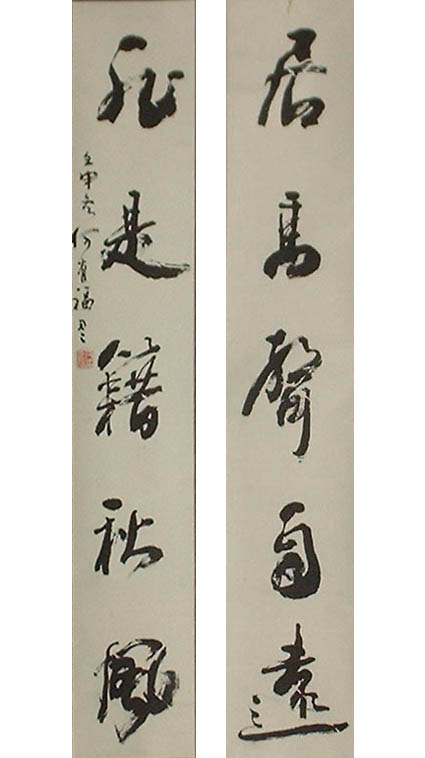 居高聲自遠
非是籍秋風
壬申冬何首福書